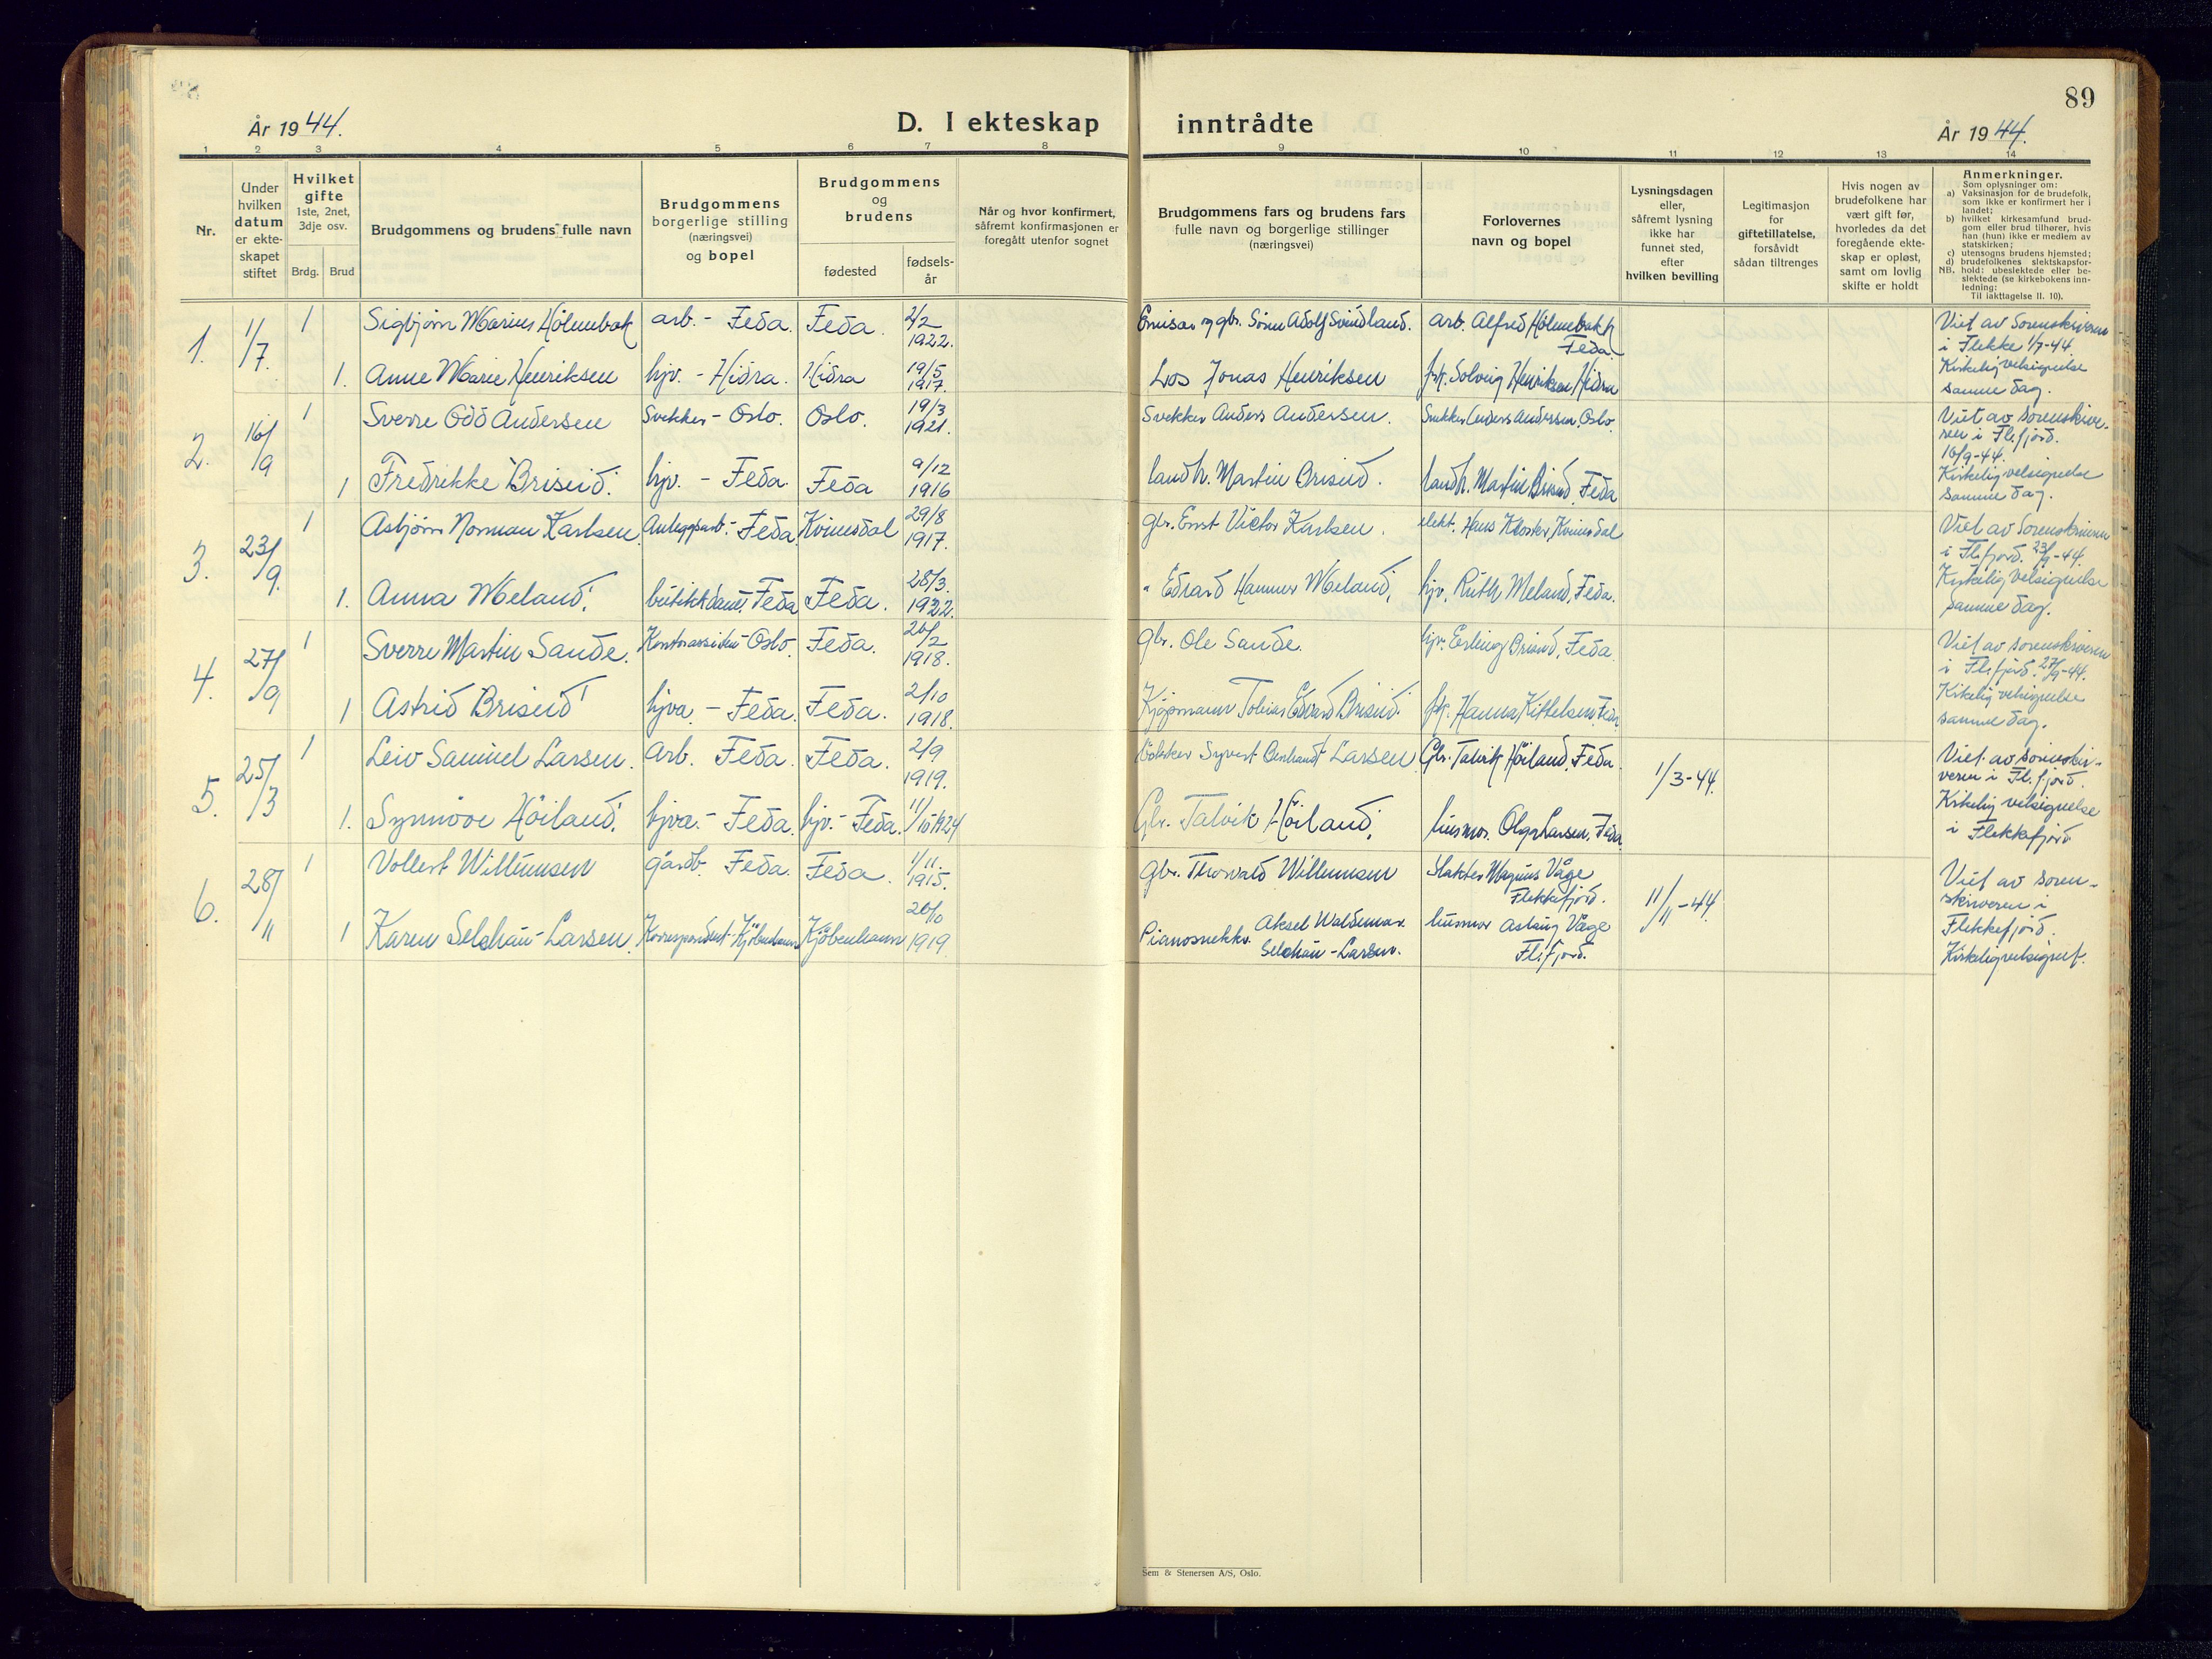 89
År 1944.
D. I ekteskap inntrådte
År 1944.
1 2 3 4 5 6 7 8 9 10 11 12 13 14
Nr.
Under
hvilken
datum
er ekte-
skapet
stiftet
Hvilket
gifte
1ste, 2net,
3dje osv.
Brdg. Brud
Brudgommens og brudens fulle navn
Brudgommens
borgerlige stilling
(næringsvei)
og bopel
Brudgommens
og
brudens
fødested
fødsels-
år
Når og hvor konfirmert,
såfremt konfirmasjonen er
foregått utenfor sognet
Brudgommens fars og brudens fars
fulle navn og borgerlige stillinger
(næringsvei)
Forlovernes
navn og bopel
Lysningsdagen
eller,
såfremt lysning
ikke har
funnet sted,
efter
hvilken bevilling
Legitimasjon
for
giftetillatelse,
forsåvidt
sådan tiltrenges
Hvis nogen av
brudefolkene har
vært gift før,
hvorledes da det
foregående ekte-
skap er opløst,
samt om lovlig
skifte er holdt
Anmerkninger.
Som oplysninger om:
a) Vaksinasjon for de brudefolk,
som ikke er konfirmert her i
landet;
b) hvilket kirkesamfund brud-
gom eller brud tilhører, hvis
han (hun) ikke er medlem av
statskirken;
c) utensogns brudens hjemsted;
d) brudefolkenes slektskapsfor-
NB. hold: ubeslektede eller be-
slektede (se kirkebokens inn-
ledning:
Til iakttagelse II. 10).
1. 1/7. 1 Sigbjørn Marius Holmbak arb. - Feda. Feda. 2/2 1922. og gbr. Adolf Svindland. arb. Alfred Holmbakk Feda.
Viet av Sorenskriveren
i Flekke 1/7-44.
Kirkelig velsignelse
samme dag.
1. Anne Marie Henriksen hjv. - Hidra. Hidra 19/5 1917. Los Jonas Henriksen Solveig Henriksen, Hidra
2. 16/9 1 Sverre Odd Andersen - Oslo. Oslo. 19/3 1921. Anders Andersen. Anders Andersen, Oslo.
Viet av sorenskrive-
ren i Fl.fjord.
16/9-44.
Kirkelig velsignelse
samme dag.
1 Fredrikke Briseid. hjv. - Feda. Feda 9/12 1916 landh. Martin Briseid. landh. Martin Briseid, Feda
3. 23/9. 1 Asbjørn Norman Karlsen. Anleggsarb. - Feda. Kvinesdal 29/8 1917. gbr. Ernst Victor Karlsen. elekt. Hans Kloster, Kvinesdal
Viet av Sorenskriveren
i Fl.fjord. 23/9-44.
Kirkelig velsignelse
samme dag.
1. Anna Meland. butikkdame, Feda Feda. 28/3. 1922. " Edvard Hammer Meland. hjv. Ruth Meland, Feda.
4. 27/9 1 Sverre Martin Sande. - Oslo. Feda. 26/2 1918. gbr. Ole Sande. Erling Briseid, Feda
Viet av sorenskriveren
i Fl.fjord. 27/9-44.
Kirkelig velsignelse
samme dag.
1 Astrid Briseid hjva - Feda. Feda. 2/10 1918. Kjøpmann Tobias Edvard Briseid. Hanna Kittelsen Feda
5. 25/3 1 Leiv Samuel Larsen. arb. Feda. Feda. 2/9 1919. Syvert Larsen Gbr. Talvik Höiland, Feda. 1/3-44.
Viet av sorenskri-
veren i Fl.fjord.
Kirkelig velsignelse
i Flekkefjord
1. Synnöve Höiland. hjva. - Feda. hjv. - Feda. 11/10 1924 Gbr. Talvik Höiland. husmor Olga Larsen, Feda.
6. 28/11 1 Vollert Willumsen gårdb. Feda. Feda. 1/11. 1915. gbr. Thorvald Willumsen Slakter Magnus Våge Flekkefjord. 11/11-44.
Viet av soren-
skriveren i
Flekkefjord.
Kirkelig velsignet.
1 Karen Selchau-Larsen. Korrespondent - Kjöbenhavn Kjöbenhavn 1919. Pianosnekker Aksel Waldemar Selchau-Larsen. husmor Aslaug Våge Fl.fjord.
Sem & Stenersen A/S, Oslo.